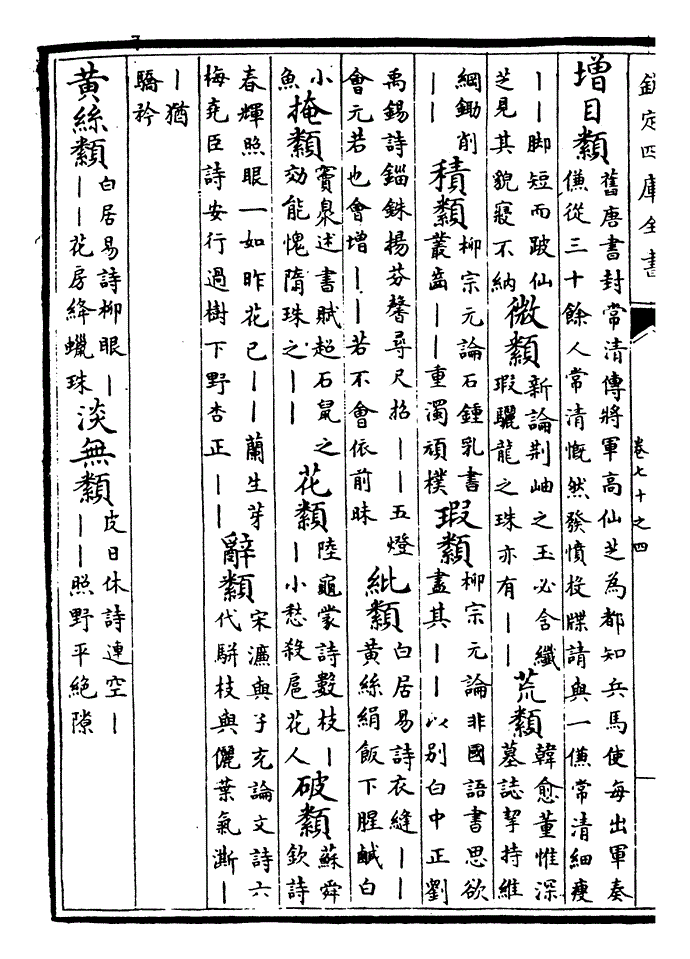 欽定四庫全書
卷七十之四
增目纇舊唐書封常清傳將軍高仙芝為都知兵馬使每出軍奏傔從三十餘人常清慨然發憤投牒請與一傔常清細瘦
——脚短而跛仙芝見其貌寢不納微纇新論荆岫之玉必含纖瑕驪龍之珠亦有——荒纇韓愈董惟深墓誌挐持維
綱鋤削——積纇柳宗元論石鍾乳書叢齒——重濁頑樸瑕纇柳宗元論非國語書思欲盡其——以别白中正劉
禹錫詩錙銖揚芬馨尋尺招——五燈會元若也會增——若不會依前昧紕纇白居易詩衣縫——黄絲絹飯下腥鹹白
小魚掩纇竇泉述書賦超石鼠之效能愧隋珠之——花纇陸龜蒙詩數枝——小愁殺扈花人破纇蘇舜欽詩
春輝照眼一如昨花已——蘭生芽梅堯臣詩安行過樹下野杏正——辭纇宋濓與子充論文詩六代駢枝與儷葉氣澌—
—猶驕矜
黄絲纇白居易詩柳眼——花房絳蠟珠淡無纇皮日休詩連空——照野平絶隙